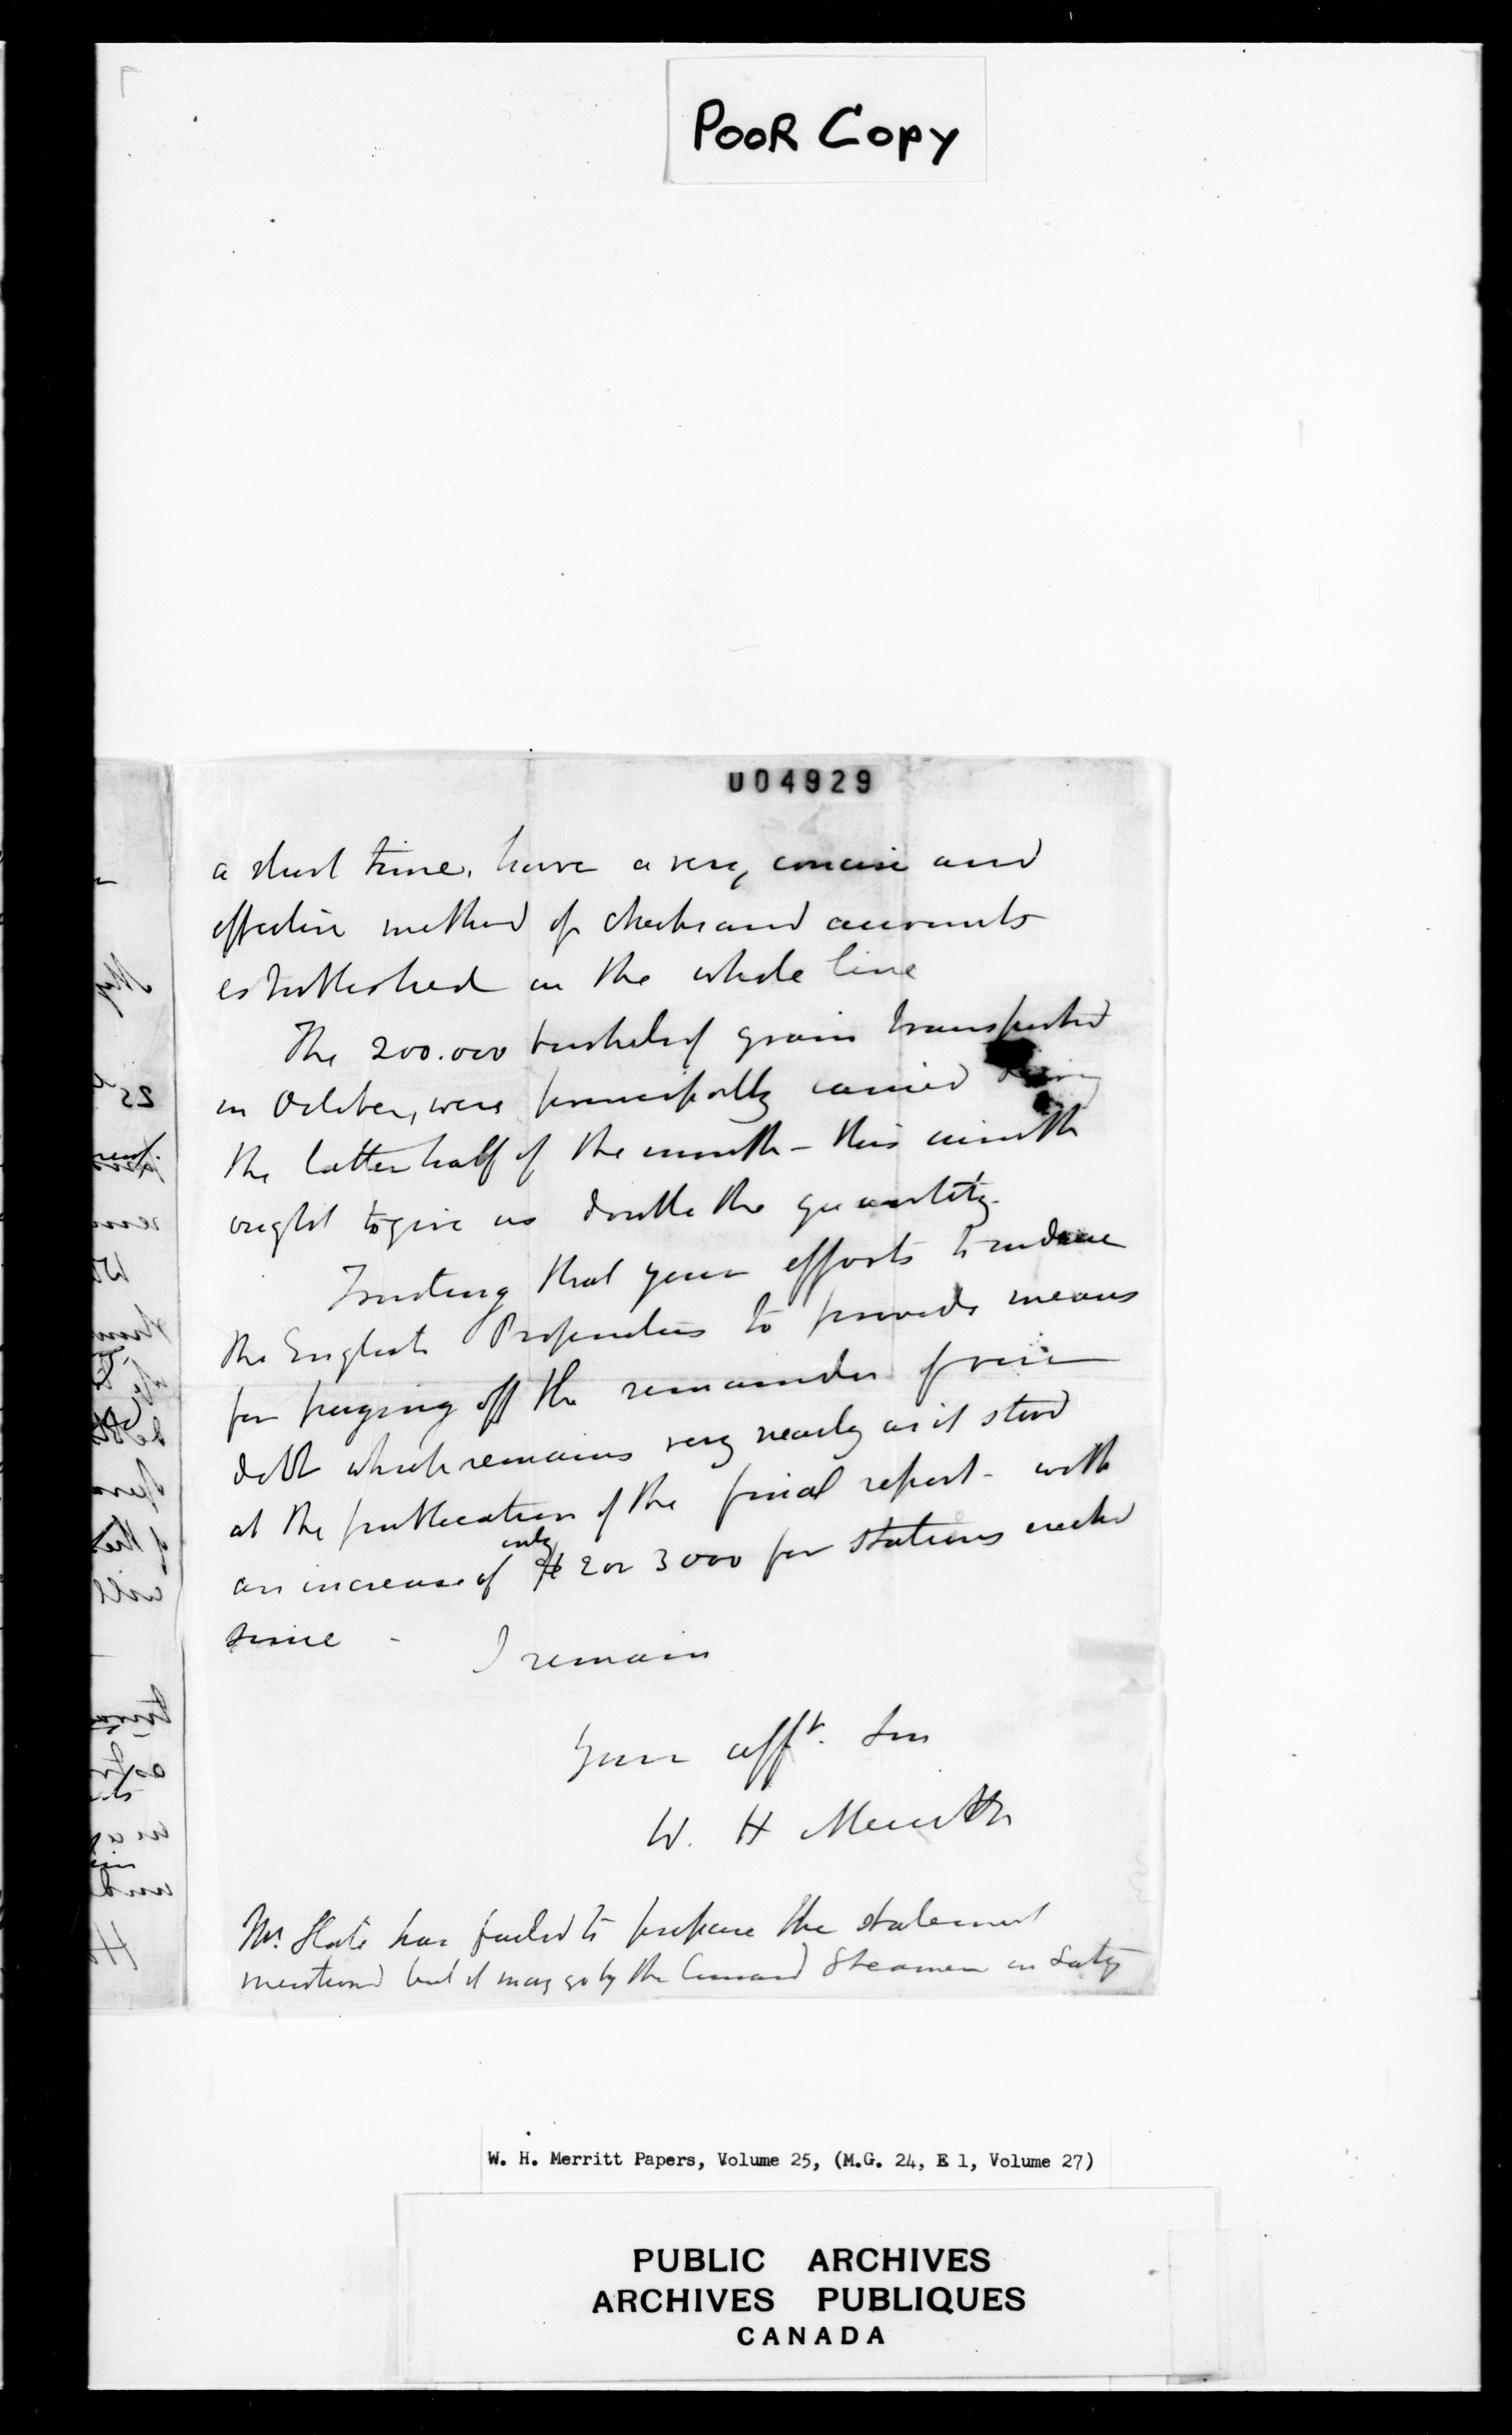 POOR COPY
U04929
a short time, have a very concise and
effective method of checks and accounts
established on the whole line
The 200.000 bushels of grain transported
in October, were principally carried during
the latter half of the month - this month
ought to give us double the quantity.
Trusting that your efforts to induce
the English Proprietors to provide means
for paying off the remainder of our
debt which remains very nearly as it stood
at the publication of the final report - with
an increase of only 2 or 3000 for stations erected
since -
I remain
Your afft. Son
W. H Merritt Jr
Mr. Slate has failed to prepare the statement
mentioned but it may go by the Cunard Steamer on Saty
W. H. Merritt Papers, Volume 25, (M.G. 24, E 1, Volume 27)
PUBLIC ARCHIVES
ARCHIVES PUBLIQUES
CANADA